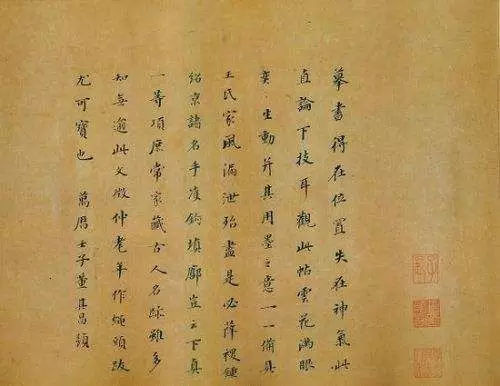 摹書得在位置失在神氣此
直論下技耳觀此帖雲花滿眼
奕々生動并其用墨之意一一備具
王氏家風漏泄殆盡是必薛稷鍾
紹京諸名手雙鉤填廓豈云下真
一等項庶常家藏古人名跡雖多
知無逾此文徵仲老年作蠅頭跋
尤可寶也 萬曆壬子董其昌題